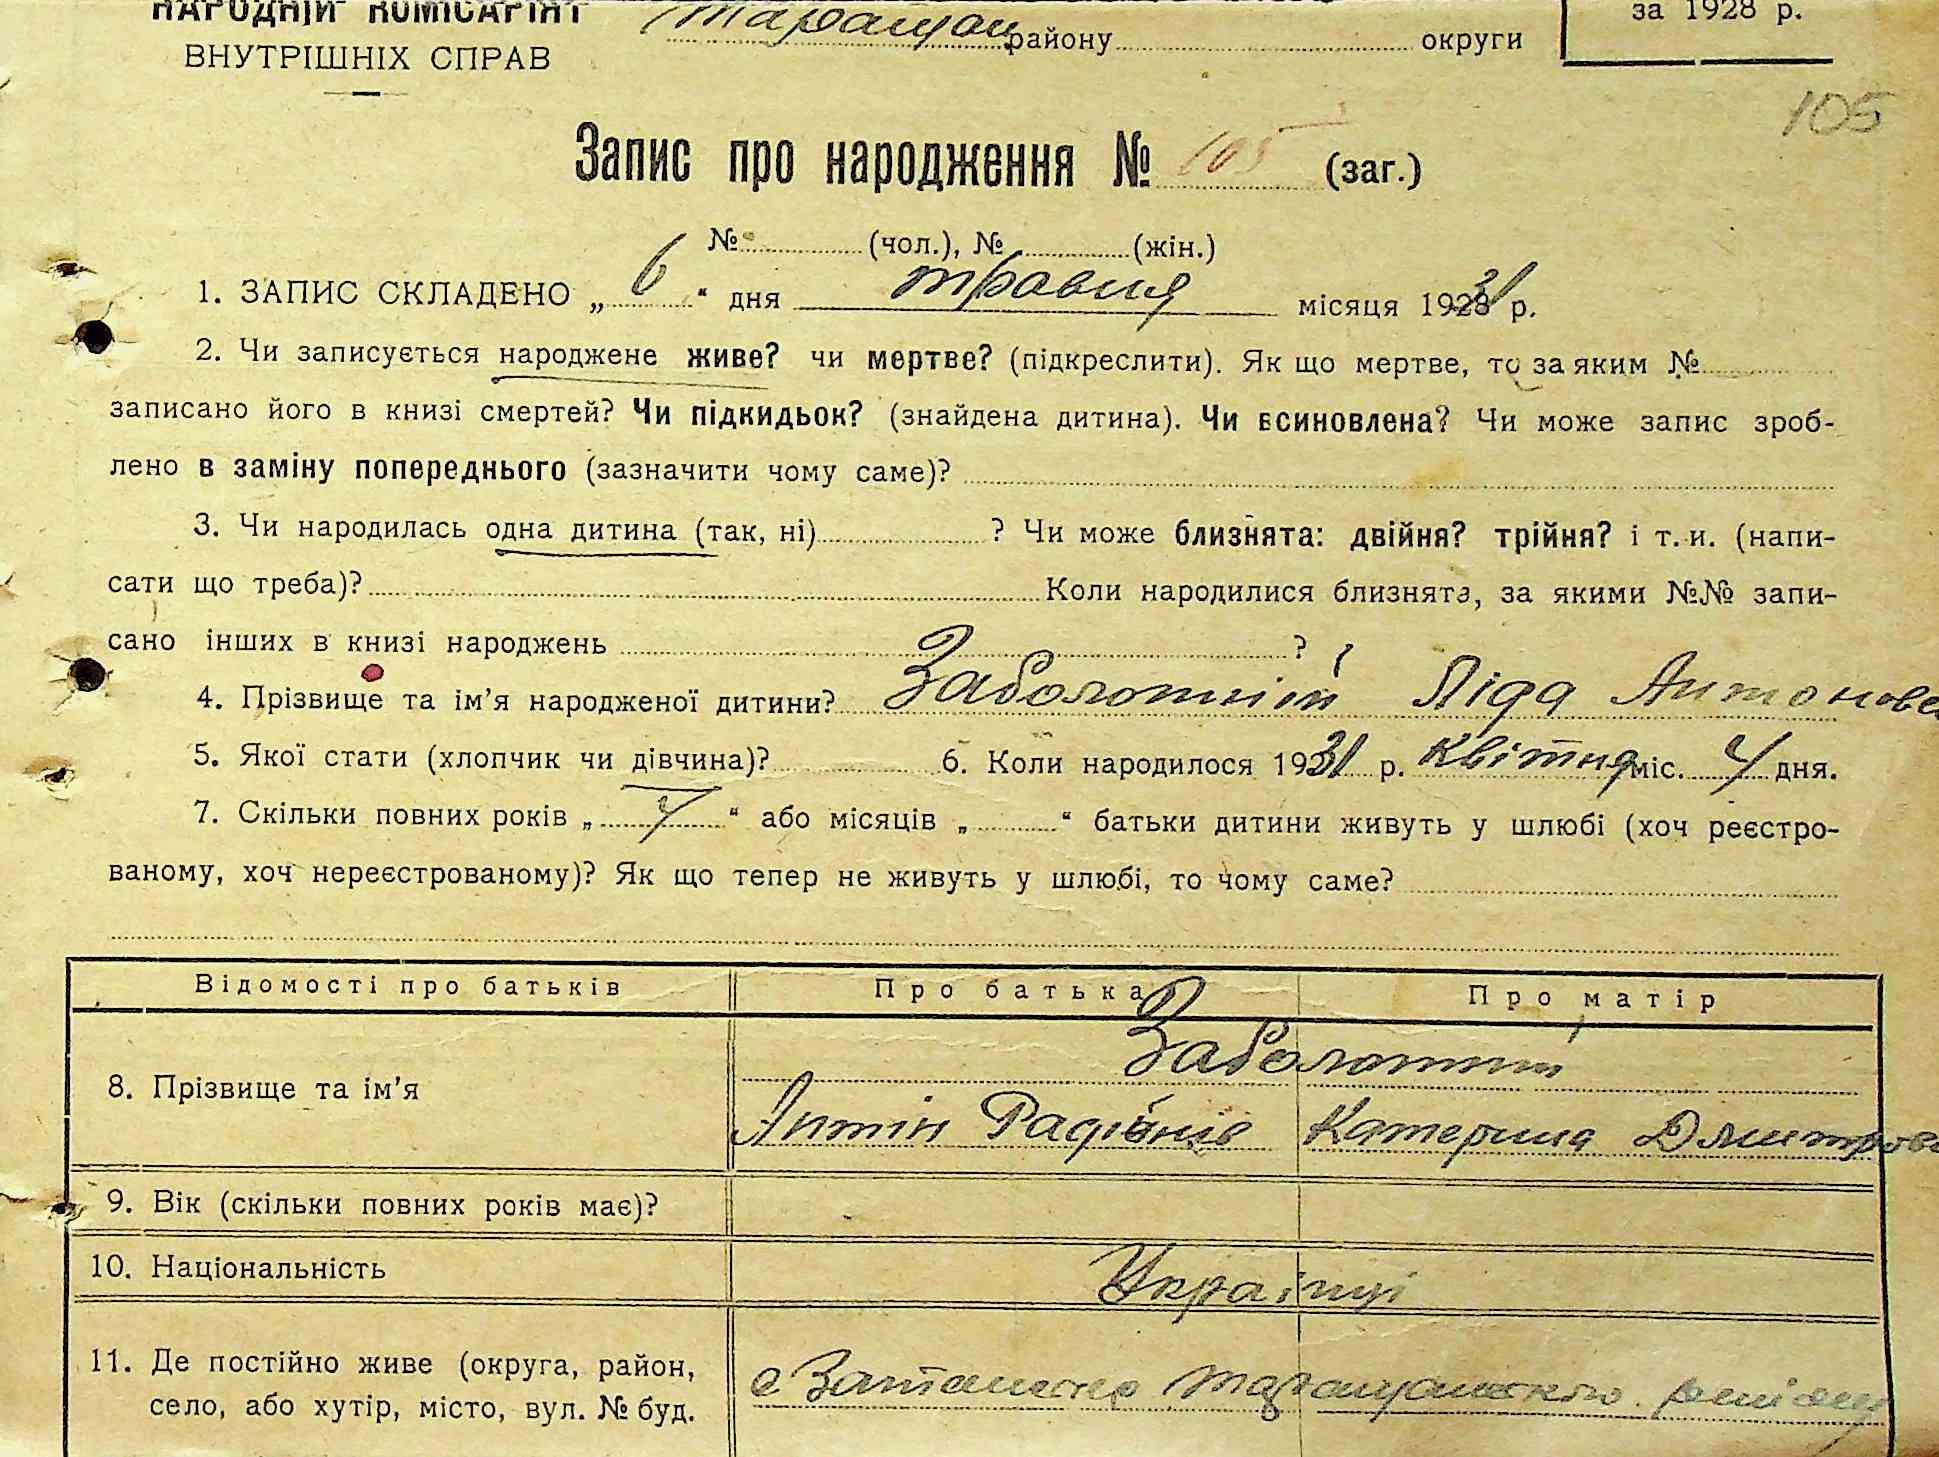 НАРОДНІЙ КОМІСАРІЯТ
ВНУТРІШНІХ СПРАВ
району округи
за 1928 р.
105
Запис про народження № 105 (заг.)
№ (чол.), № (жін.)
1. ЗАПИС СКЛАДЕНО „ 6 “ дня травня місяця 1931 р.
2. Чи записується народжене живе? чи мертве? (підкреслити). Як що мертве, то за яким №
записано його в книзі смертей? Чи підкидьок? (знайдена дитина). Чи всиновлена? Чи може запис зроб-
лено в заміну попереднього (зазначити чому саме)?
3. Чи народилась одна дитина (так, ні) ? Чи може близнята: двійня? трійня? і т. и. (напи-
сати що треба)? Коли народилися близнята, за якими №№ запи-
сано інших в книзі народжень ?
4. Прізвище та ім’я народженої дитини? Заболотній Ліда Антонов
5. Якої стати (хлопчик чи дівчина)? 6. Коли народилося 1931 р. квітня міс. 4 дня.
7. Скільки повних років „ 4 “ або місяців „ “ батьки дитини живуть у шлюбі (хоч реєстро-
ваному, хоч нереєстрованому)? Як що тепер не живуть у шлюбі, то чому саме?
Відомості про батьків Про батька Про матір
8. Прізвище та ім’я Заболотній
Антін Радіонів Катерина Дмитров
9. Вік (скільки повних років має)?
10. Національність Українці
11. Де постійно живе (округа, район,
село, або хутір, місто, вул. № буд.
с Таращанського району